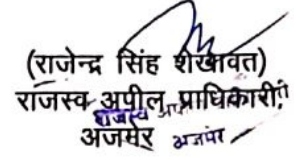 (राजेन्द्र सिंह शेखावत)
राजस्व अपील प्राधिकारी,
राजस्व
अजमेर अजमेर